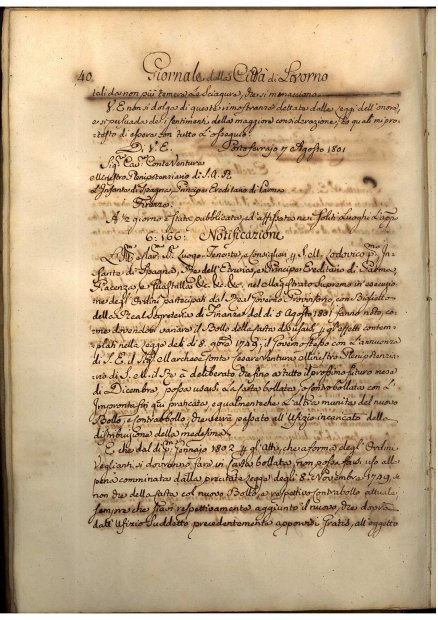 40. Giornale della Città di Livorno
tali da non più temere le sciagure, che si minacciano.
V. E. non si dolga di queste rimostranze dettate dalla leggi dell'onore,
e si persuada dei sentimenti della maggiore considerazione, co quali mi pro-
testo di essere con tutto l'ossequio
D. V. E. Portoferrajo 7 Agosto 1801
Sig.r Cav. Conte Ventura
Ministro Plenipotenziario di S. A. R.
L'Infante di Spagna, Principe Ereditario di Parma
Firenze:
A 12 giorno è stata pubblicata, ed affissata nei soliti Luoghi l'appa
6: 166: Notificazioni
Luogo Tenente, e Consiglieri S. M. Lodovico In-
fante di Spagna, Re dell'Etruria, e Principe Ereditario di Parma,
Piacenza, e Guastalla &c. &c. &c. nel Magistrato Supremo in esecuzio-
ne degl'Ordini partecipati dal Real Governo Provvisorio, con Biglietto
della Real Segreteria di Finanze del dì 5 Agosto 1801 fanno noto, co-
me dovendosi variare il Bollo della Carta da usarsi gl'effetti contem-
plati nella legge del dì 8. 9bre 1749, il Governo stesso con l'annuenza
di S. E. il Sig.r Marchese Conte Cesare Ventura Ministro Plenipotenzia-
rio di S. M. il Re à deliberato, che fino a tutto il prossimo futuro mese
di Dicembre possa usarsi la Carta bollata, e controbollata con l'
Impronta fin qui praticata egualmente che l'altra munita del nuovo
Bollo, e Contrabbollo, che verrà passato all'Ufizio incaricato della
distribuzione della medesima,
E che dal dì p.mo Gennajo 1802 gl'Atti, che a forma degl'Ordini
veglianti si dovranno fare in Carta bollata, non possa farsi uso alle
pene comminate dalla precitata legge degli 8. Novembre 1749, se
non che della Carta col nuovo Bollo, e respettivo Contrabbollo attuale,
sempre che siavi respettivamente aggiunto il nuovo, che dovrà
dall'Ufizio suddetto precedentemente apporvisi gratis, all'oggetto